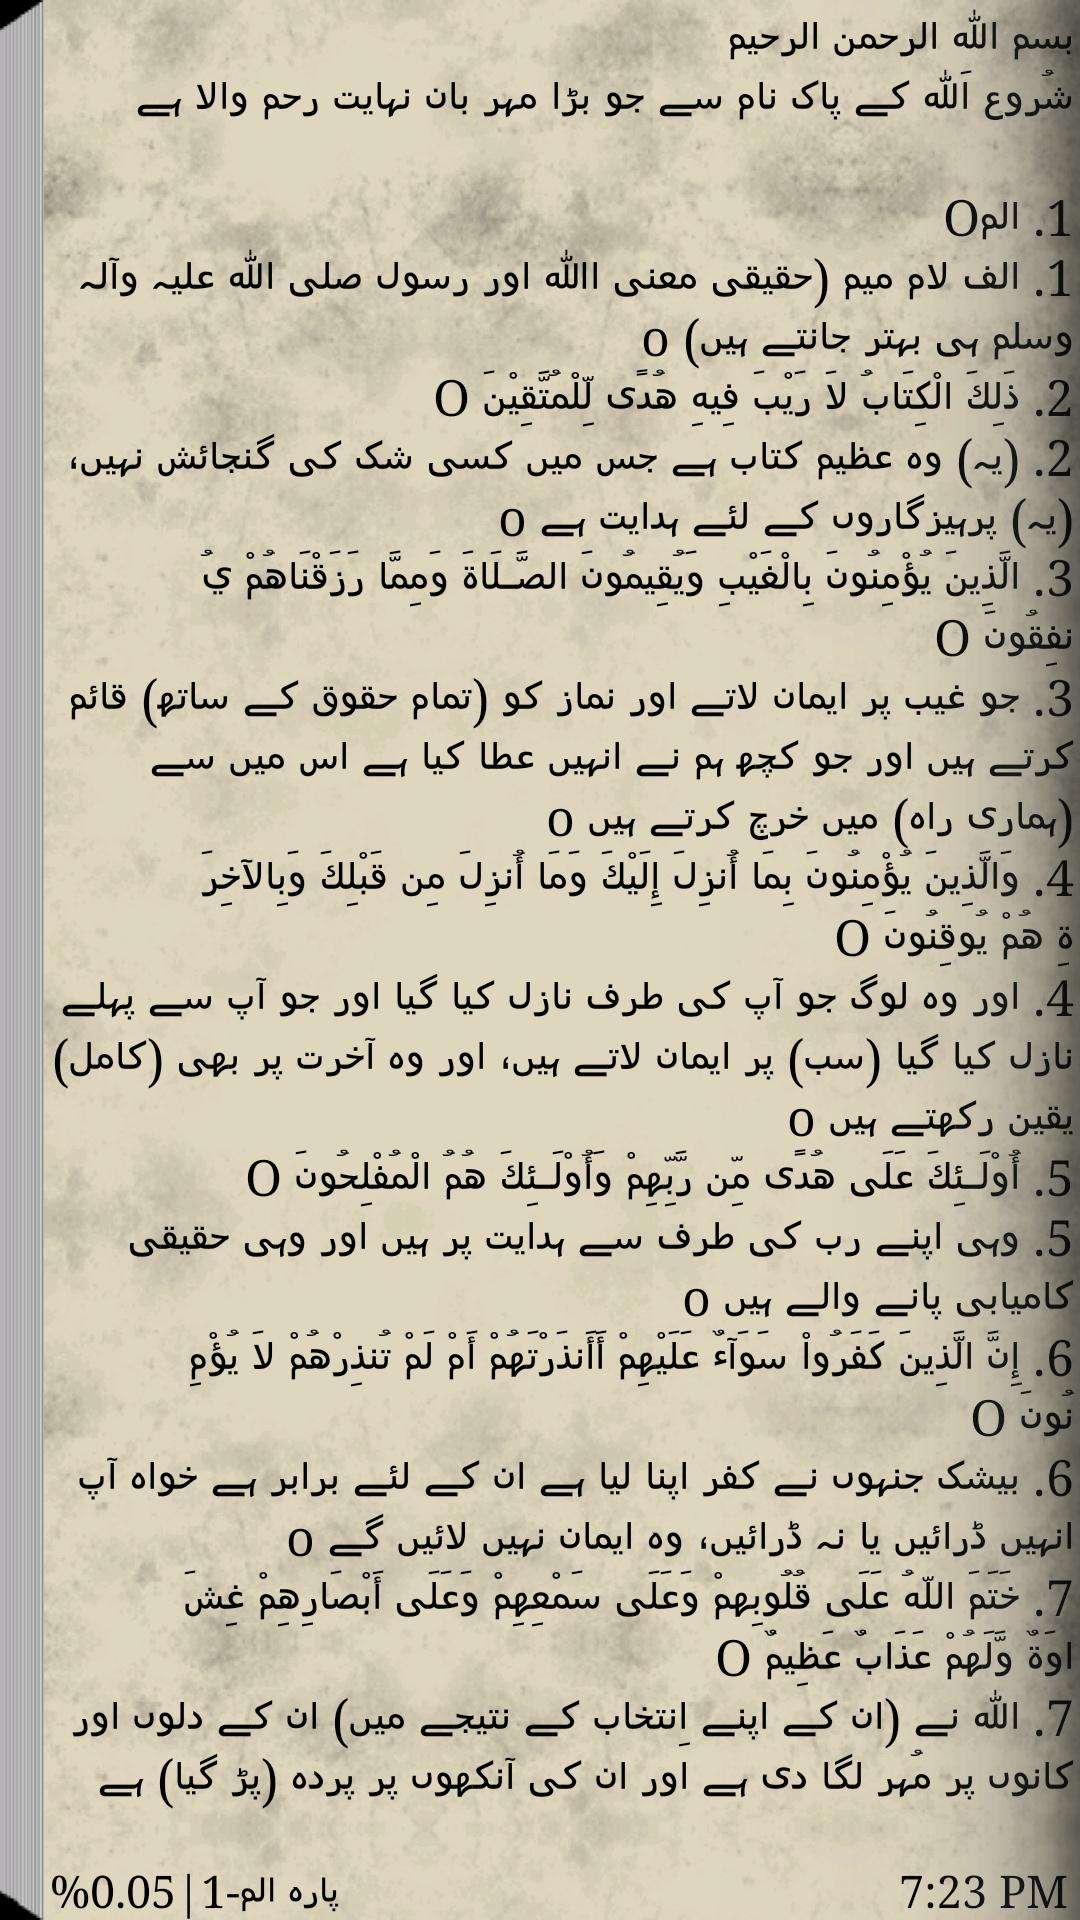 بسم الله الرحمن الرحيم
شُروع اَللّٰہ کے پاک نام سے جو بڑا مہر بان نہایت رحم والا ہے
1. المO
1. الف لام میم (حقیقی معنی االلہ اور رسول صلی اللہ علیہ وآلہ
وسلم ہی بہتر جانتے ہیں) o
2. ذَلِكَ الْكِتَابُ لاَ رَيْبَ فِيهِ هُدًى لِّلْمُتَّقِيْنَ O
2. (یہ) وہ عظیم کتاب ہے جس میں کسی شک کی گنجائش نہیں،
(یہ) پرہیزگاروں کے لئے ہدایت ہے o
3. الَّذِينَ يُؤْمِنُونَ بِالْغَيْبِ وَيُقِيمُونَ الصَّـلَاةَ وَمِمَّا رَزَقْنَاهُمْ يُ
نفِقُونَ O
3. جو غیب پر ایمان لاتے اور نماز کو (تمام حقوق کے ساتھ) قائم
کرتے ہیں اور جو کچھ ہم نے انہیں عطا کیا ہے اس میں سے
(ہماری راہ) میں خرچ کرتے ہیں o
4. وَالَّذِينَ يُؤْمِنُونَ بِمَا أُنزِلَ إِلَيْكَ وَمَا أُنزِلَ مِن قَبْلِكَ وَبِالآخِرَ
ةِ هُمْ يُوقِنُونَ O
4. اور وہ لوگ جو آپ کی طرف نازل کیا گیا اور جو آپ سے پہلے
نازل کیا گیا (سب) پر ایمان لاتے ہیں، اور وہ آخرت پر بھی (کامل)
یقین رکھتے ہیں o
5. أُوْلَـئِكَ عَلَى هُدًى مِّن رَّبِّهِمْ وَأُوْلَـئِكَ هُمُ الْمُفْلِحُونَ O
5. وہی اپنے رب کی طرف سے ہدایت پر ہیں اور وہی حقیقی
کامیابی پانے والے ہیں o
6. إِنَّ الَّذِينَ كَفَرُواْ سَوَآءٌ عَلَيْهِمْ أَأَنذَرْتَهُمْ أَمْ لَمْ تُنذِرْهُمْ لاَ يُؤْمِ
نُونَ O
6. بیشک جنہوں نے کفر اپنا لیا ہے ان کے لئے برابر ہے خواہ آپ
انہیں ڈرائیں یا نہ ڈرائیں، وہ ایمان نہیں لائیں گے o
7. خَتَمَ اللّهُ عَلَى قُلُوبِهمْ وَعَلَى سَمْعِهِمْ وَعَلَى أَبْصَارِهِمْ غِشَ
اوَةٌ وَّلَهُمْ عَذَابٌ عَظِيمٌ O
7. اللہ نے (ان کے اپنے اِنتخاب کے نتیجے میں) ان کے دلوں اور
کانوں پر مُہر لگا دی ہے اور ان کی آنکھوں پر پردہ (پڑ گیا) ہے
%0.05|پارہ الم-1
7:23 PM